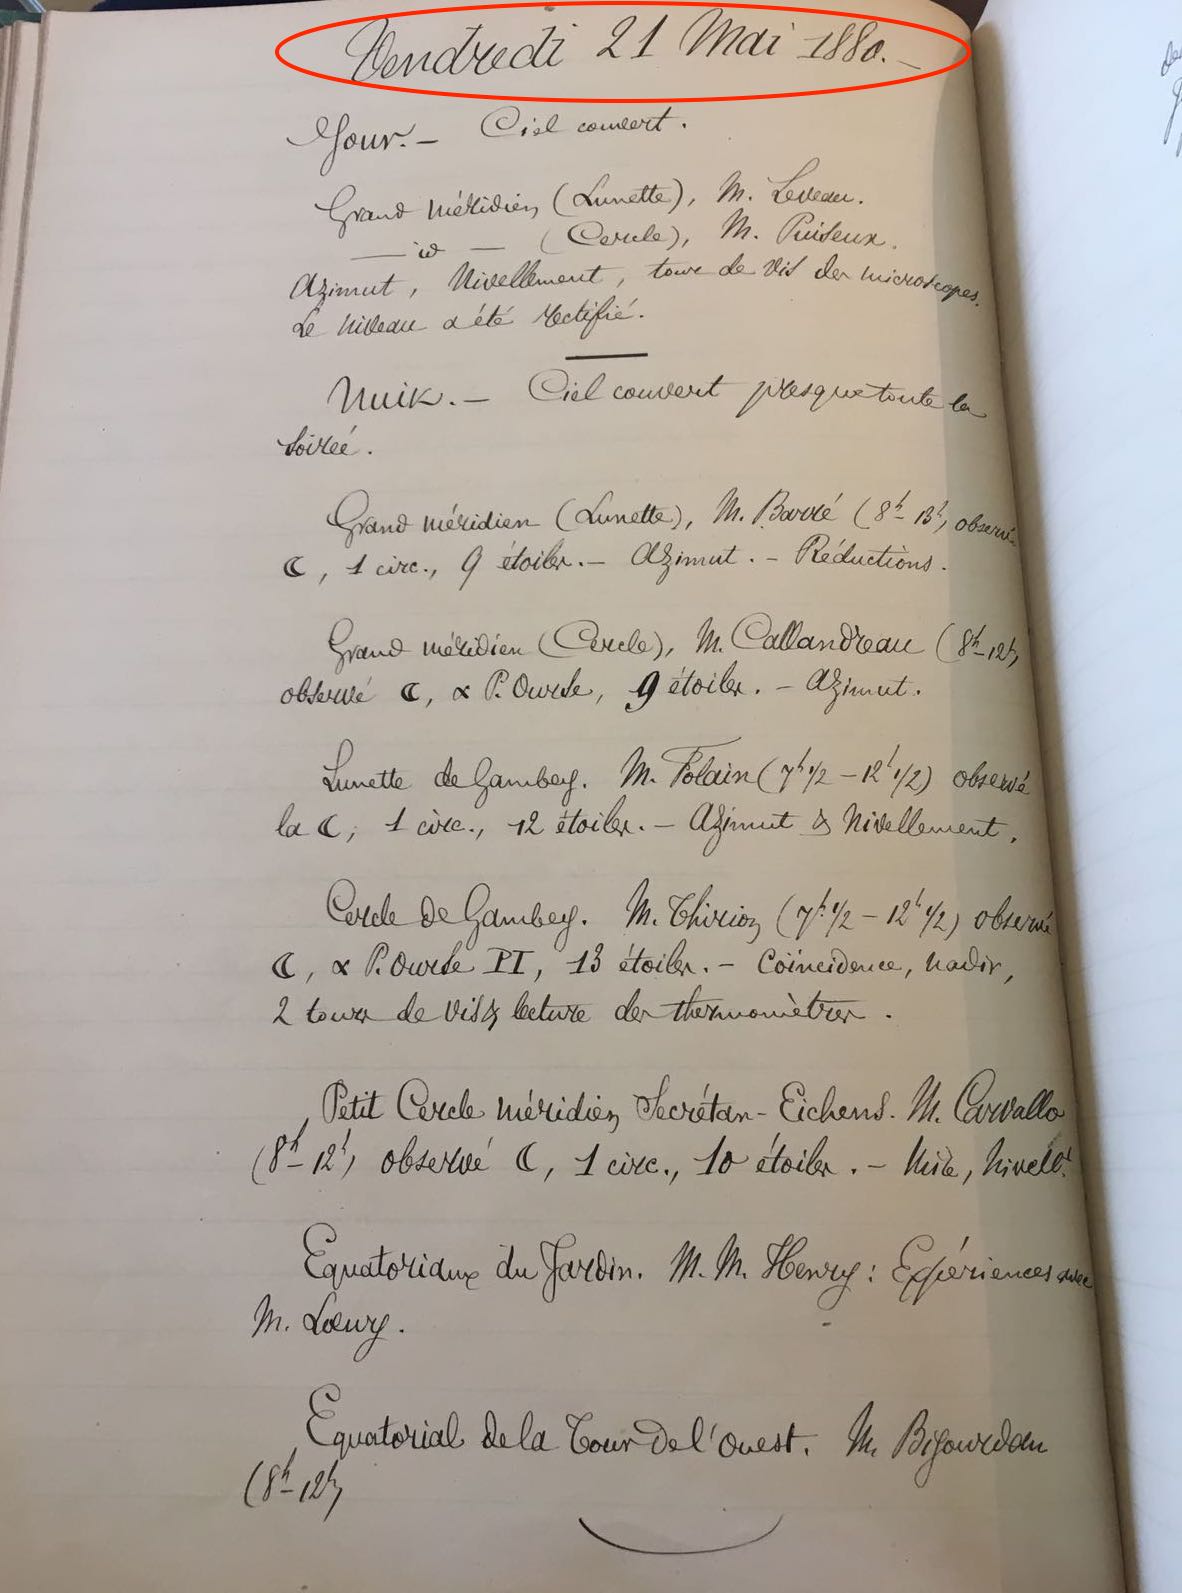 Vendredi 21 Mai 1880. —
Jour. — Ciel couvert.
Grand méridien (Lunette), M. Leveau.
— id — (Cercle), M. Puiseux.
Azimut, Nivellement, tour de vis des microscopes.
Le niveau a été rectifié.
Nuit. — Ciel couvert presque toute la
soireé.
Grand méridien (Lunette), M. Barré (8h - 13h) observé
☾, 1 circ., 9 étoiles. — Azimut. — Réductions.
Grand méridien (Cercle), M. Callandreau (8h - 12h)
observé ☾, α P. Ourse, 9 étoiles. — Azimut.
Lunette de Gambey. M. Folain (7h 1/2 — 12h 1/2) observé
la ☾, 1 circ., 12 étoiles. — Azimut & Nivellement.
Cercle de Gambey. M. Thirion (7h 1/2 — 12h 1/2) observé
☾, α P. Ourse PI, 13 étoiles. — Coïncidence, nadir,
2 tours de vis & lecture des thermomètres.
Petit Cercle méridien Secrétan - Eichens. M. Carvallo
(8h - 12h) observé ☾, 1 circ., 10 étoiles. — Mire, Nivellt.
Equatoriaux du Jardin. M. M. Henry : Expériences avec
M. Lœwy.
Equatorial de la Tour de l'Ouest. M. Bigourdan
(8h - 12h)